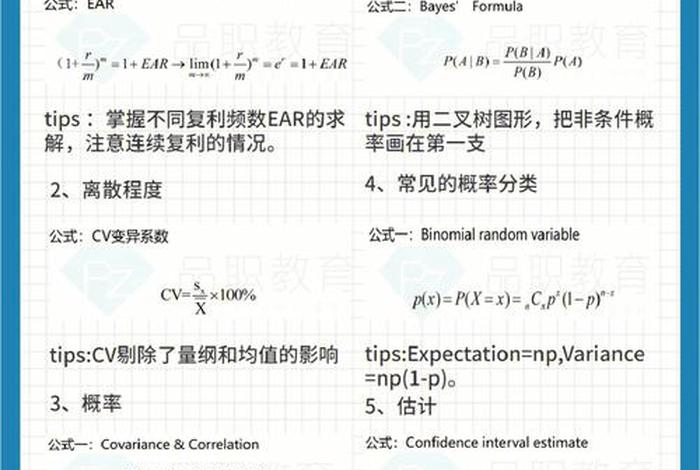 公式：EAR
(1+r/m)^m=1+EAR→lim m→∞(1+r/m)^m=e^r=1+EAR
tips：掌握不同复利频数EAR的求
解，注意连续复利的情况。
2、离散程度
公式：CV变异系数
CV=s_x/X̄×100%
tips:CV剔除了量纲和均值的影响
3、概率
公式一：Covariance & Correlation
公式二：Bayes' Formula
P(A|B)=P(B|A)/P(B)P(A)
tips:用二叉树图形，把非条件概
率画在第一支
4、常见的概率分类
公式一：Binomial random variable
p(x)=P(X=x)=_nC_xp^x(1-p)^{n-x}
tips:Expectation=np,Variance
=np(1-p)。
5、估计
公式：Confidence interval estimate
品职教育
品职教育
品职教育
品职教育